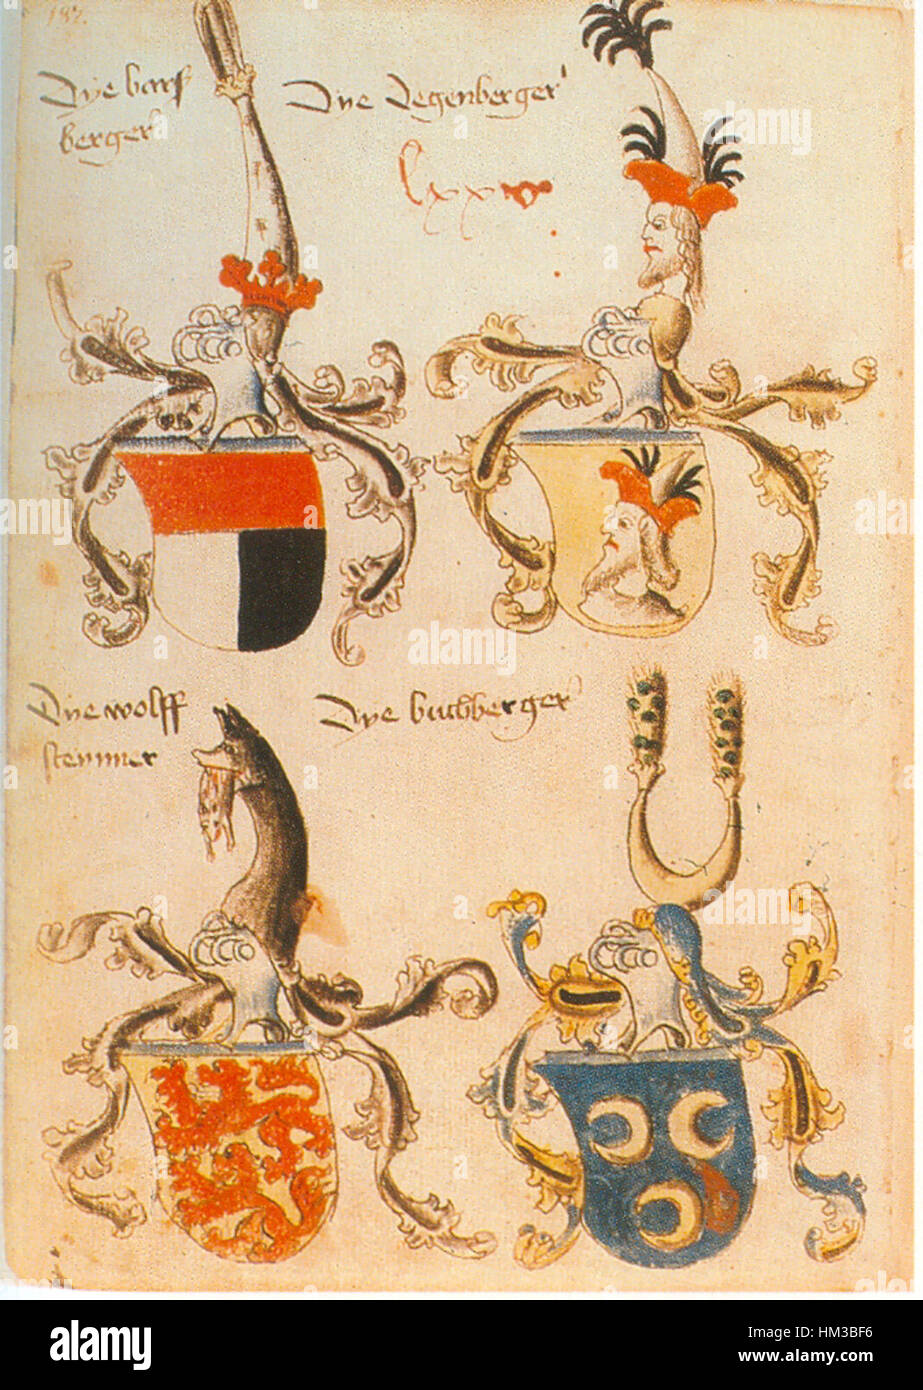 187.
Dye barf
berger
Dye Degenberger
lxxv
Dye wolff
stenner
Dye buchberger
alamy
Image ID: HM3BF6
www.alamy.com